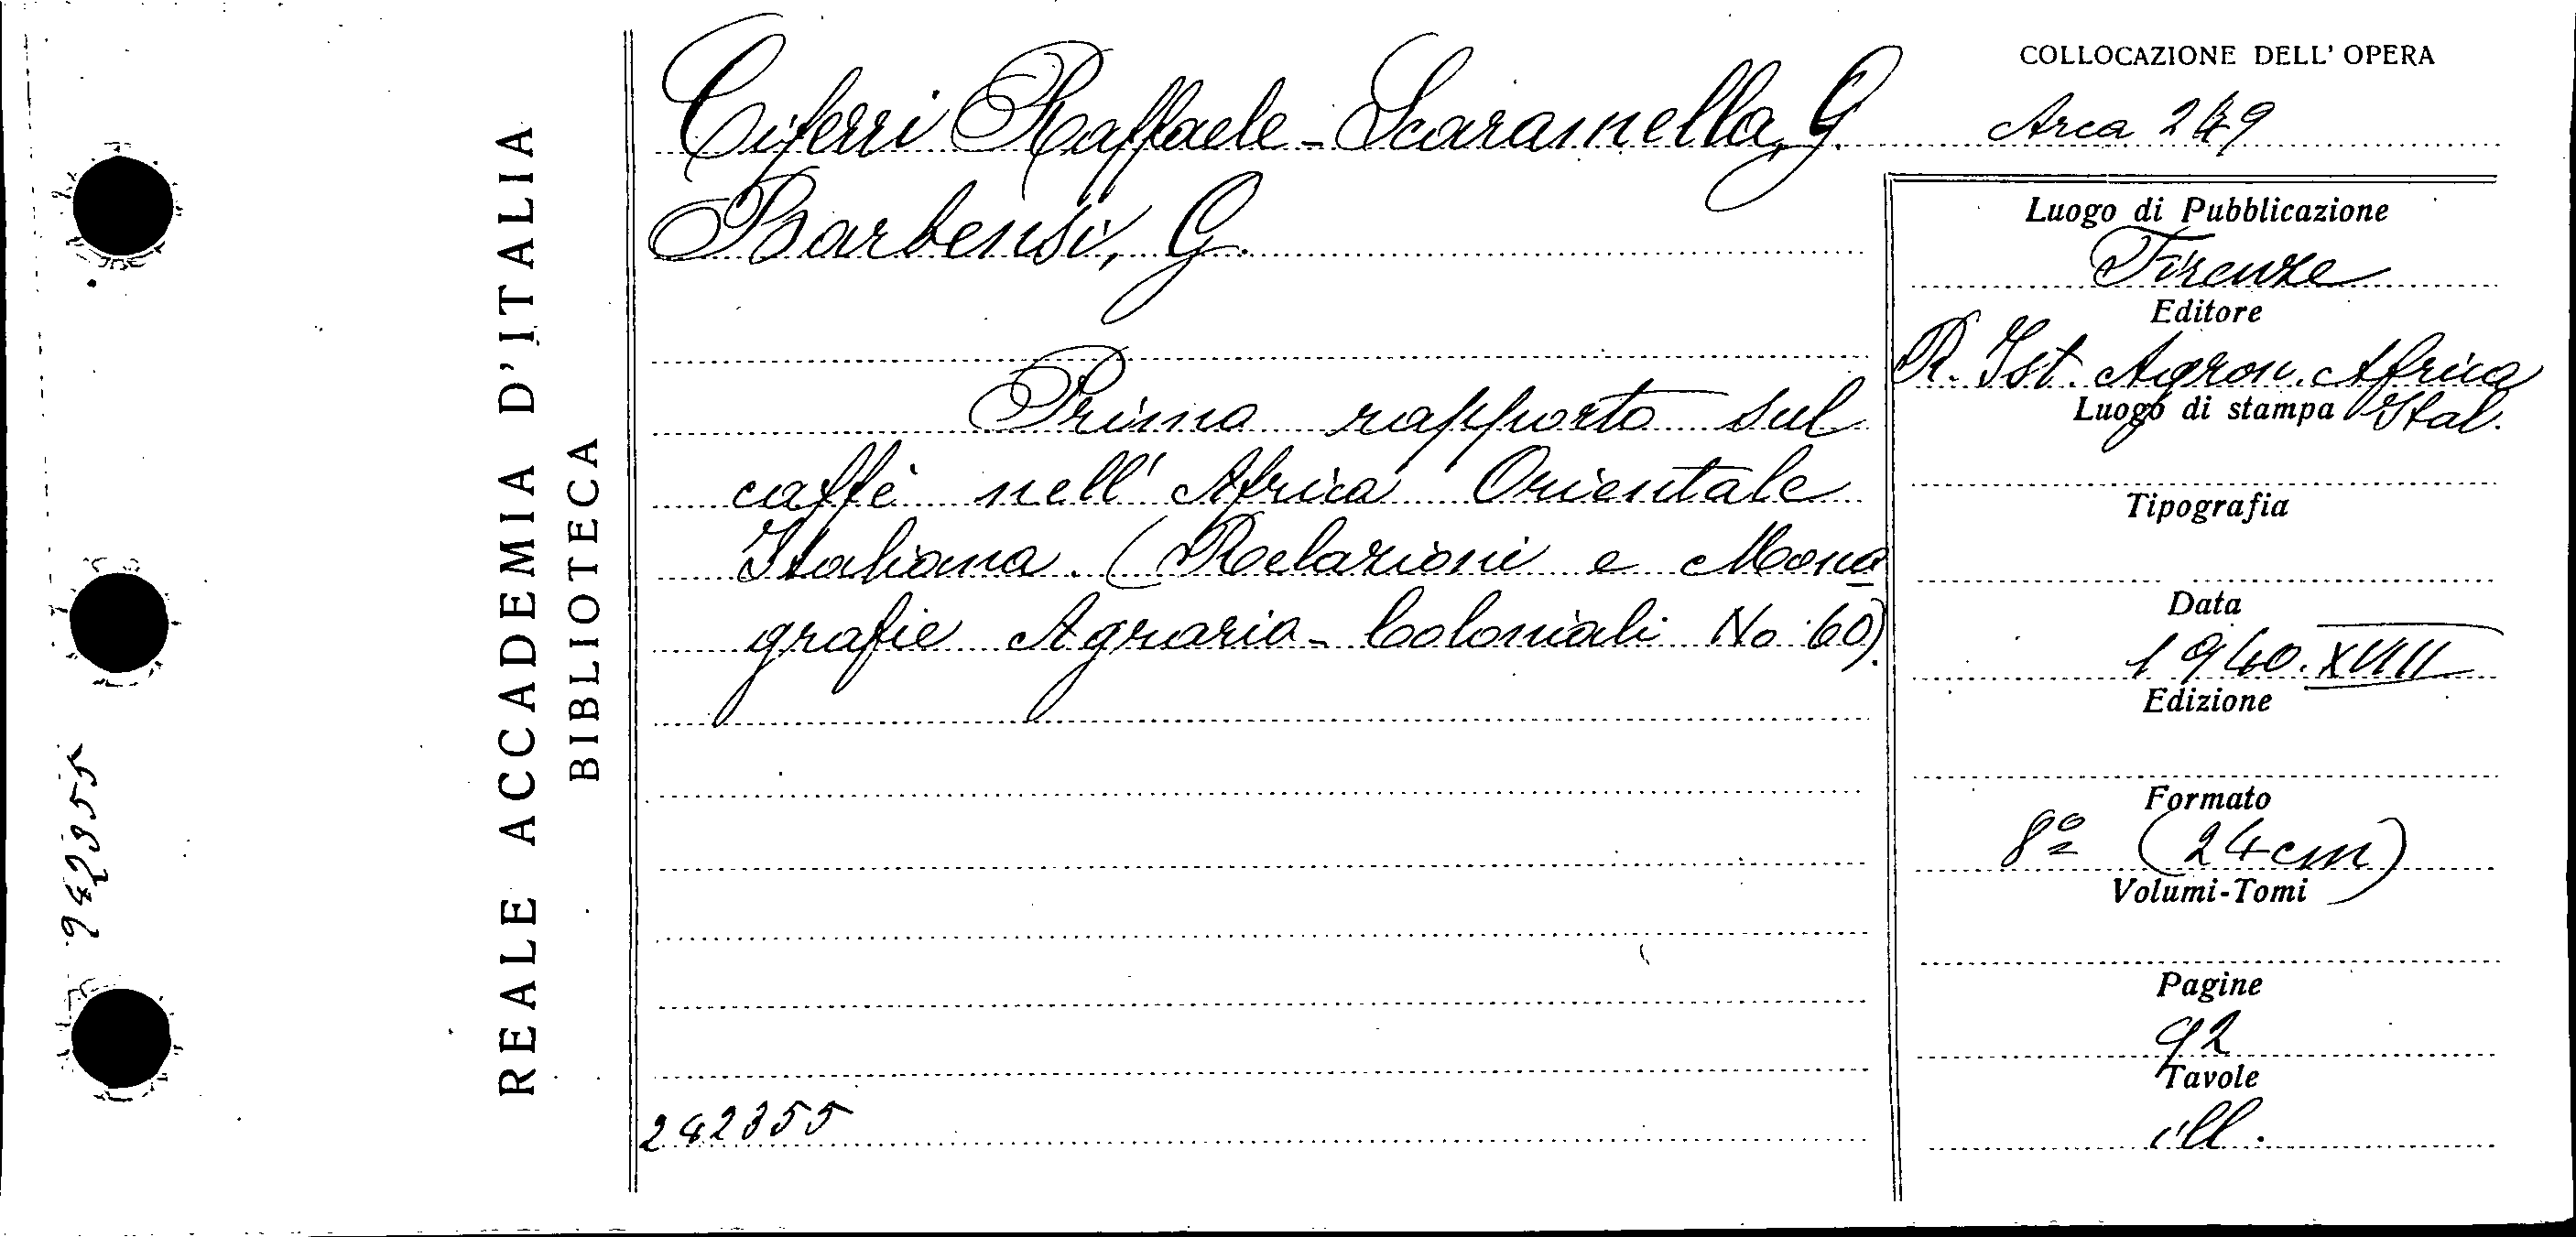 REALE ACCADEMIA D'ITALIA
BIBLIOTECA
242355
Ciferri Raffaele - Scaramella, G.
Barbensi, G.
Primo rapporto sul
caffè nell'Africa Orientale
Italiana. (Relazioni e Mono
grafie Agrario-Coloniali No 60).
242355
COLLOCAZIONE DELL'OPERA
Arca 249
Luogo di Pubblicazione
Firenze
Editore
R. Ist. Agron. Africa
Ital.
Luogo di stampa
Tipografia
Data
1940. XVIII
Edizione
Formato
8º (24cm)
Volumi-Tomi
Pagine
92
Tavole
ill.